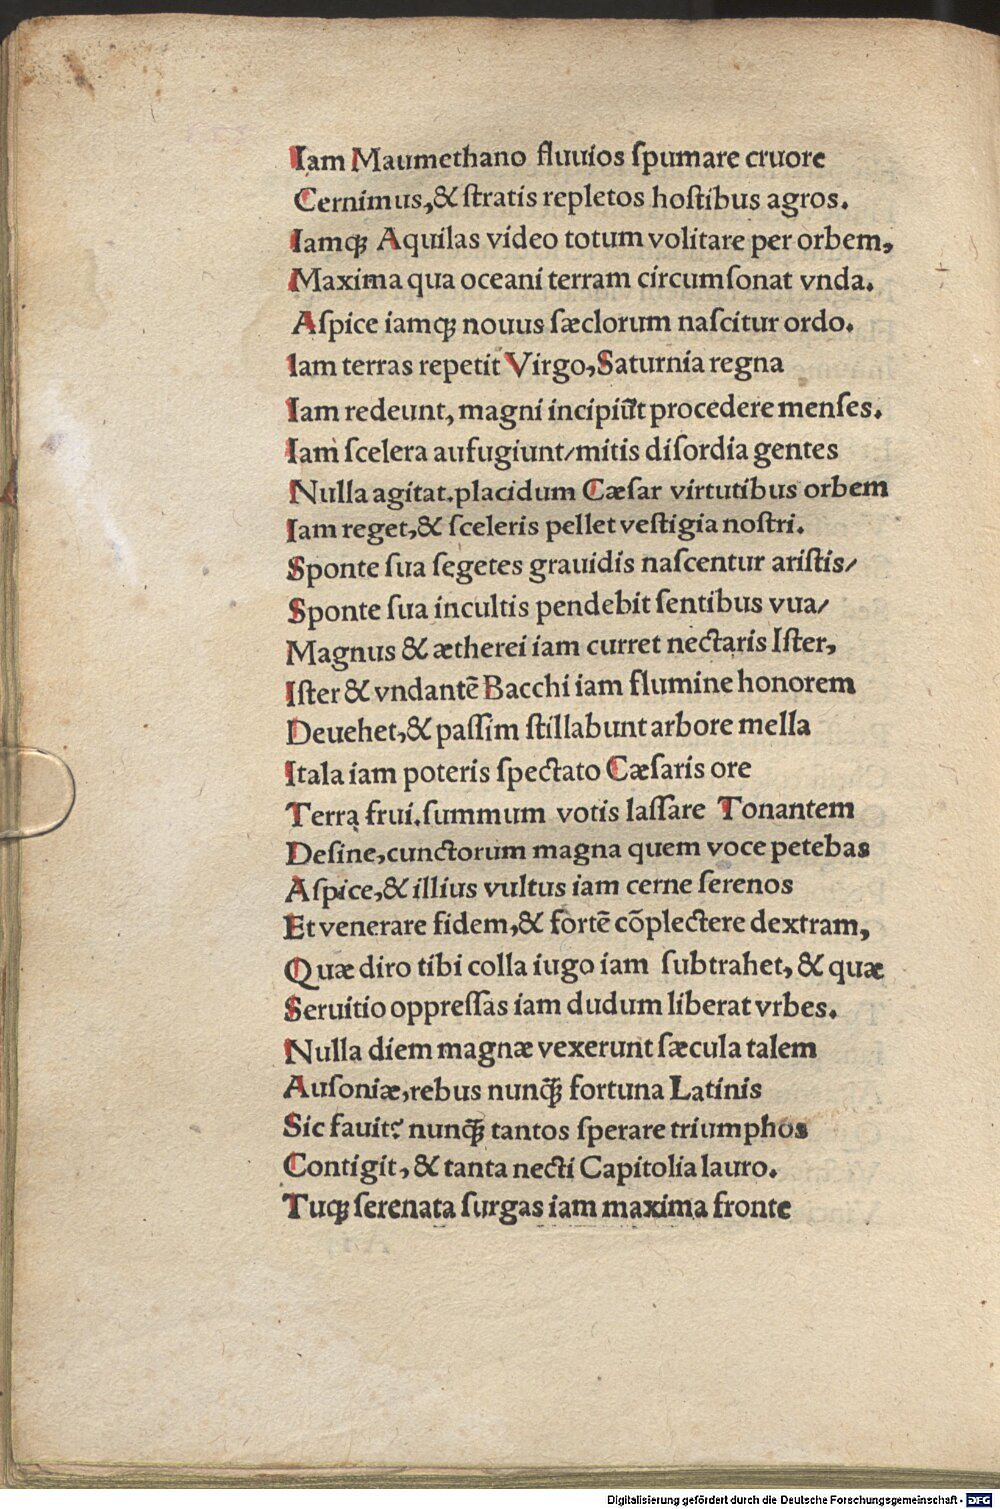 Iam Maumethano fluuios ſpumare cruore
Cernimus,& ſtratis repletos hoſtibus agros.
Iamqꝫ Aquilas video totum volitare per orbem,
Maxima qua oceani terram circumſonat vnda.
Aſpice iamqꝫ nouus ſæclorum naſcitur ordo.
Iam terras repetit Virgo,Saturnia regna
Iam redeunt, magni incipiūt procedere menſes.
Iam ſcelera aufugiunt/mitis diſordia gentes
Nulla agitat.placidum Cæſar virtutibus orbem
Iam reget,& ſceleris pellet veſtigia noſtri.
Sponte ſua ſegetes grauidis naſcentur ariſtis/
Sponte ſua incultis pendebit ſentibus vua/
Magnus & ætherei iam curret nectaris Iſter,
Iſter & vndantē Bacchi iam flumine honorem
Deuehet,& paſſim ſtillabunt arbore mella
Itala iam poteris ſpectato Cæſaris ore
Terra frui.ſummum votis laſſare Tonantem
Deſine,cunctorum magna quem voce petebas
Aſpice,& illius vultus iam cerne ſerenos
Et venerare fidem,& fortē cōplectere dextram,
Quæ diro tibi colla iugo iam ſubtrahet, & quæ
Seruitio oppreſſas iam dudum liberat vrbes.
Nulla diem magnæ vexerunt ſæcula talem
Auſoniæ,rebus nunqꝫ̄ fortuna Latinis
Sic fauit? nunqꝫ̄ tantos ſperare triumphos
Contigit, & tanta necti Capitolia lauro.
Tuqꝫ ſerenata ſurgas iam maxima fronte
Digitalisierung gefördert durch die Deutsche Forschungsgemeinschaft - DFG